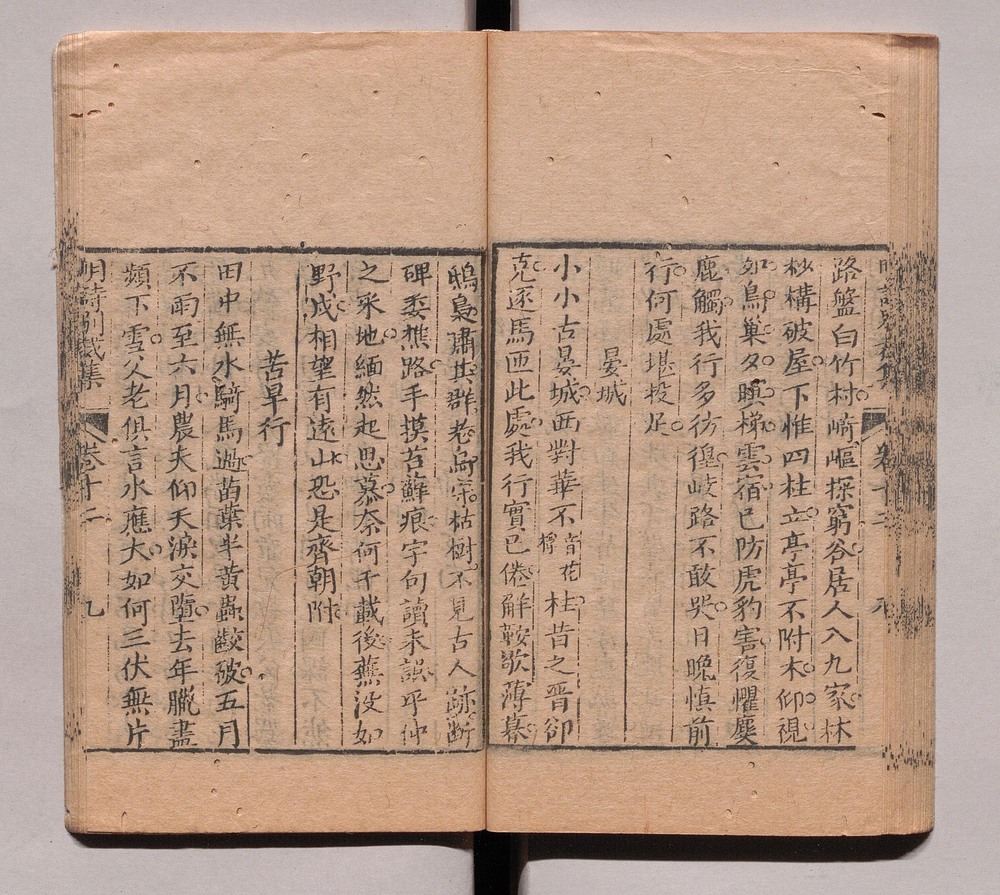 路盤白竹村崎嶇探窮谷居人入九家林
杪構破屋下惟四柱立亭亭不附木仰視
如鳥巢夕暝梯雲宿已防虎豹害復懼麋
鹿觸我行多彷徨岐路不敢哭日晚慎前
行何處堪投足
晏城
小小古晏城西對華不音花
桲柱昔之晋卻
克逐馬匝此處我行實已倦解鞍歇薄暮
鴟梟嘯其群老
枯樹不見古人跡斷
碑委樵路手摸苔蘚痕字句讀未誤乎仲
之采地緬然起思慕奈何千載後蕪没如
野成相望有遠山恐是齊朝附
苦旱行
田中無水騎馬過苗葉半黃蟲齩破五月
不雨至六月農夫仰天淚交墮去年臘盡
頻下雪父老俱言水應大如何三伏無片
明詩別裁集
卷十二
九